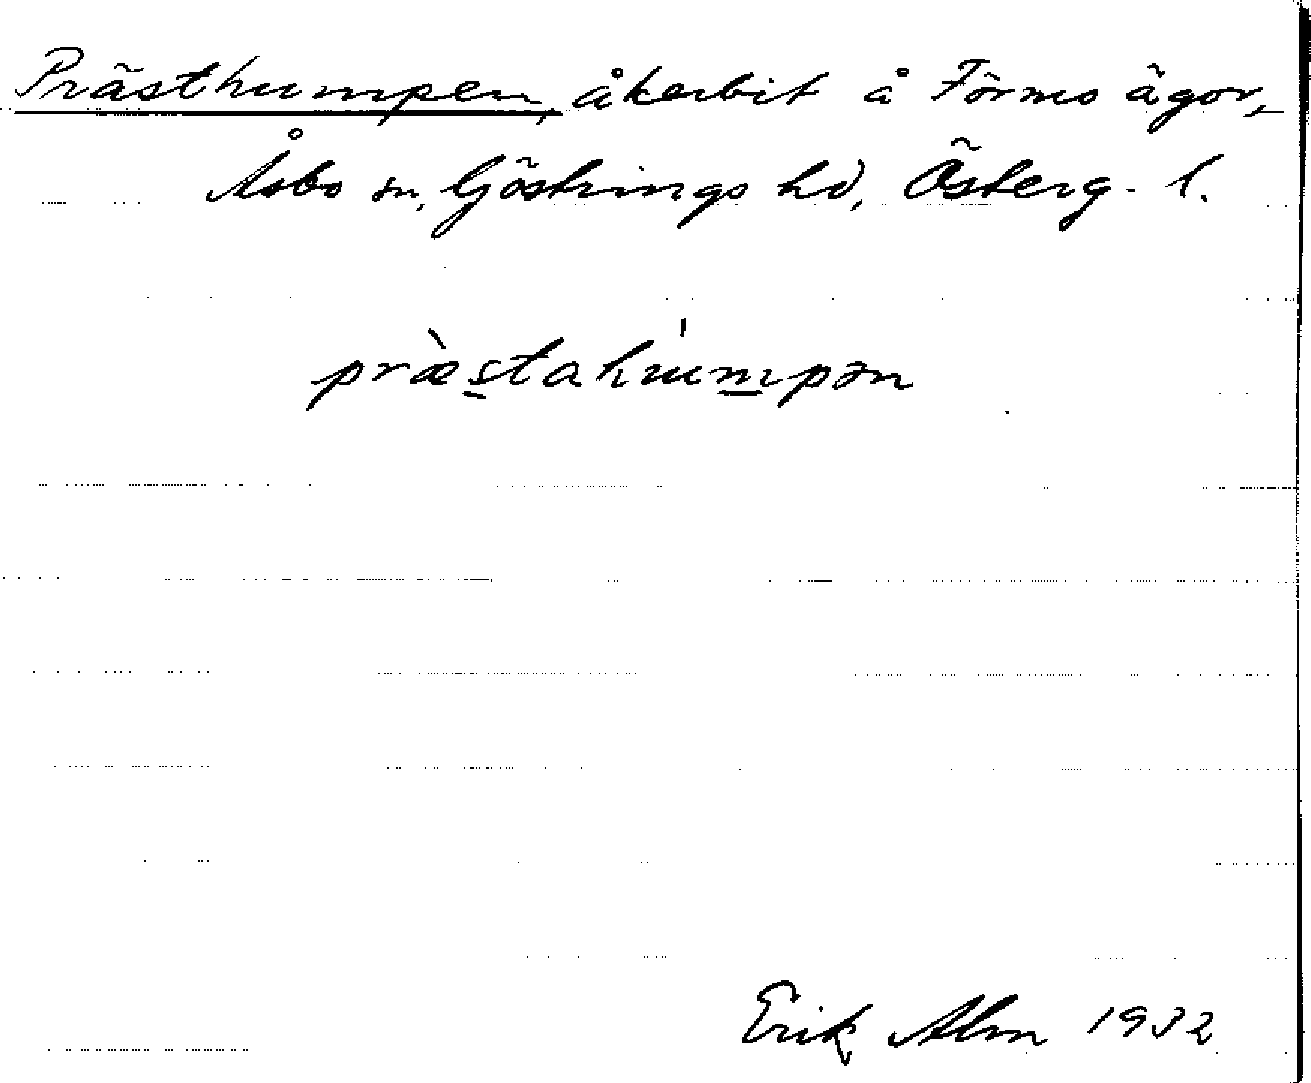 Prästhumpen, åkerbit å Förms ägor,
Åsbo sn, Göstrings hd, Österg. l.
præ̀stahu̍mpən
Erik Alm 1932